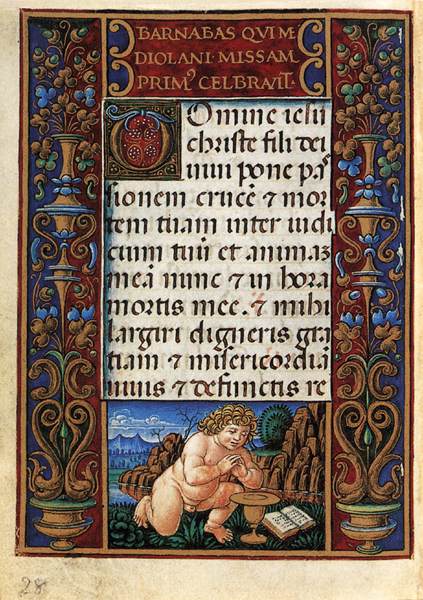 BARNABAS QVI ME
DIOLANI· MISSAM
PRIMꝰ CELBRAVIT·
Domine iesu
christe fili dei
uiui pone pas
sionem crucē ⁊ mor
tem tuam inter iudi
cium tuū et animaz
meā nunc ⁊ in hora
mortis mee. ⁊ mihi
largiri digneris gra
tiam ⁊ misericordiā
uiuis ⁊ defunctis re
28